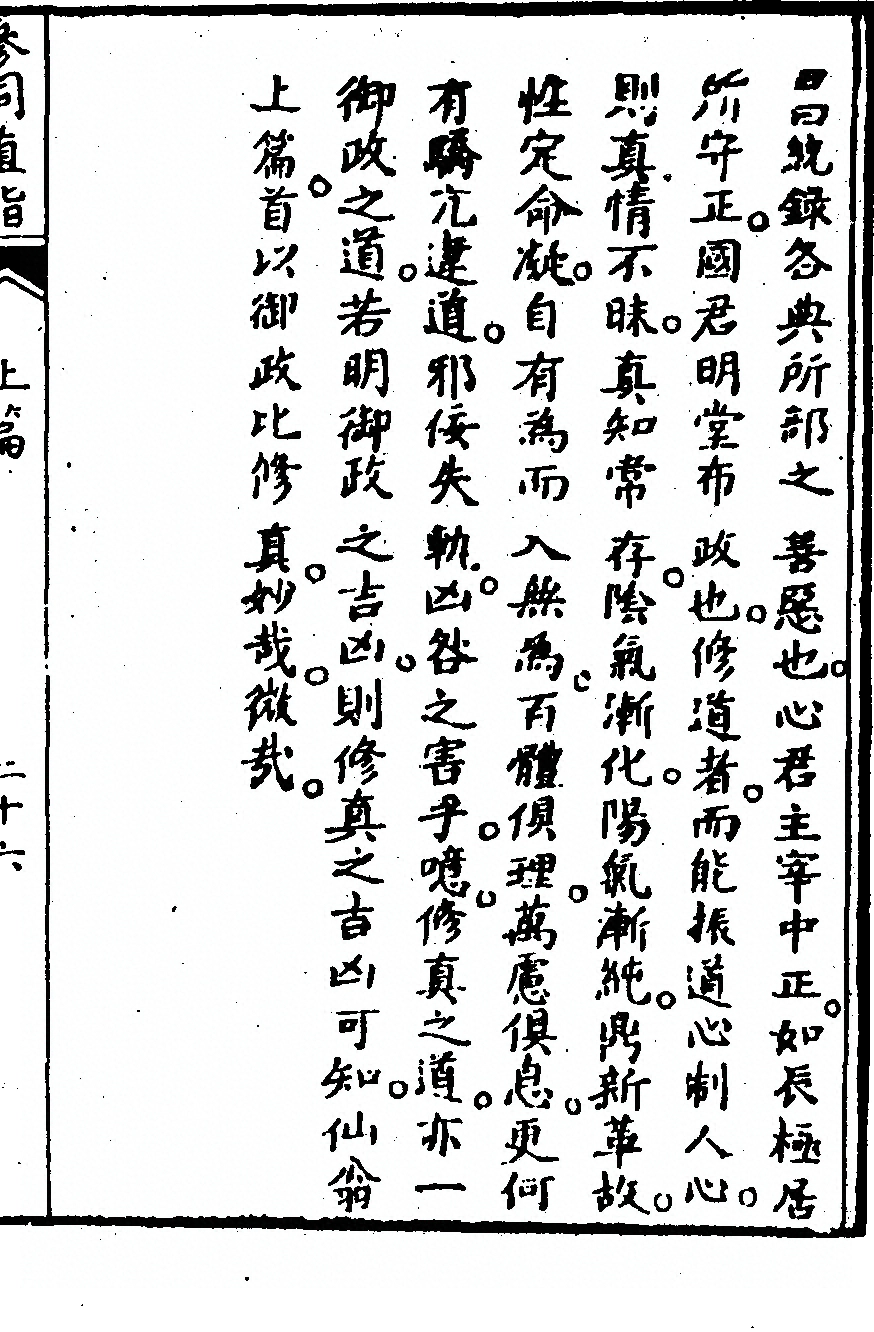 昌統録各典所部之善惡也。心君主宰中正。如辰極居
所守正。國君明堂布政也。修道者。而能振道心制人心。
則真情不昧。真知常存。陰氣漸化。陽氣漸純。鼎新革故。
性定命凝。自有為而入無為。百體俱理。萬慮俱息。更何
有驕亢違道。邪佞失軌。凶咎之害乎。噫。修真之道。亦一
御政之道。若明御政之吉凶。則修真之吉凶可知。仙翁
上篇。首以御政比修真。妙哉。微哉。
參同直指
上篇
二十六